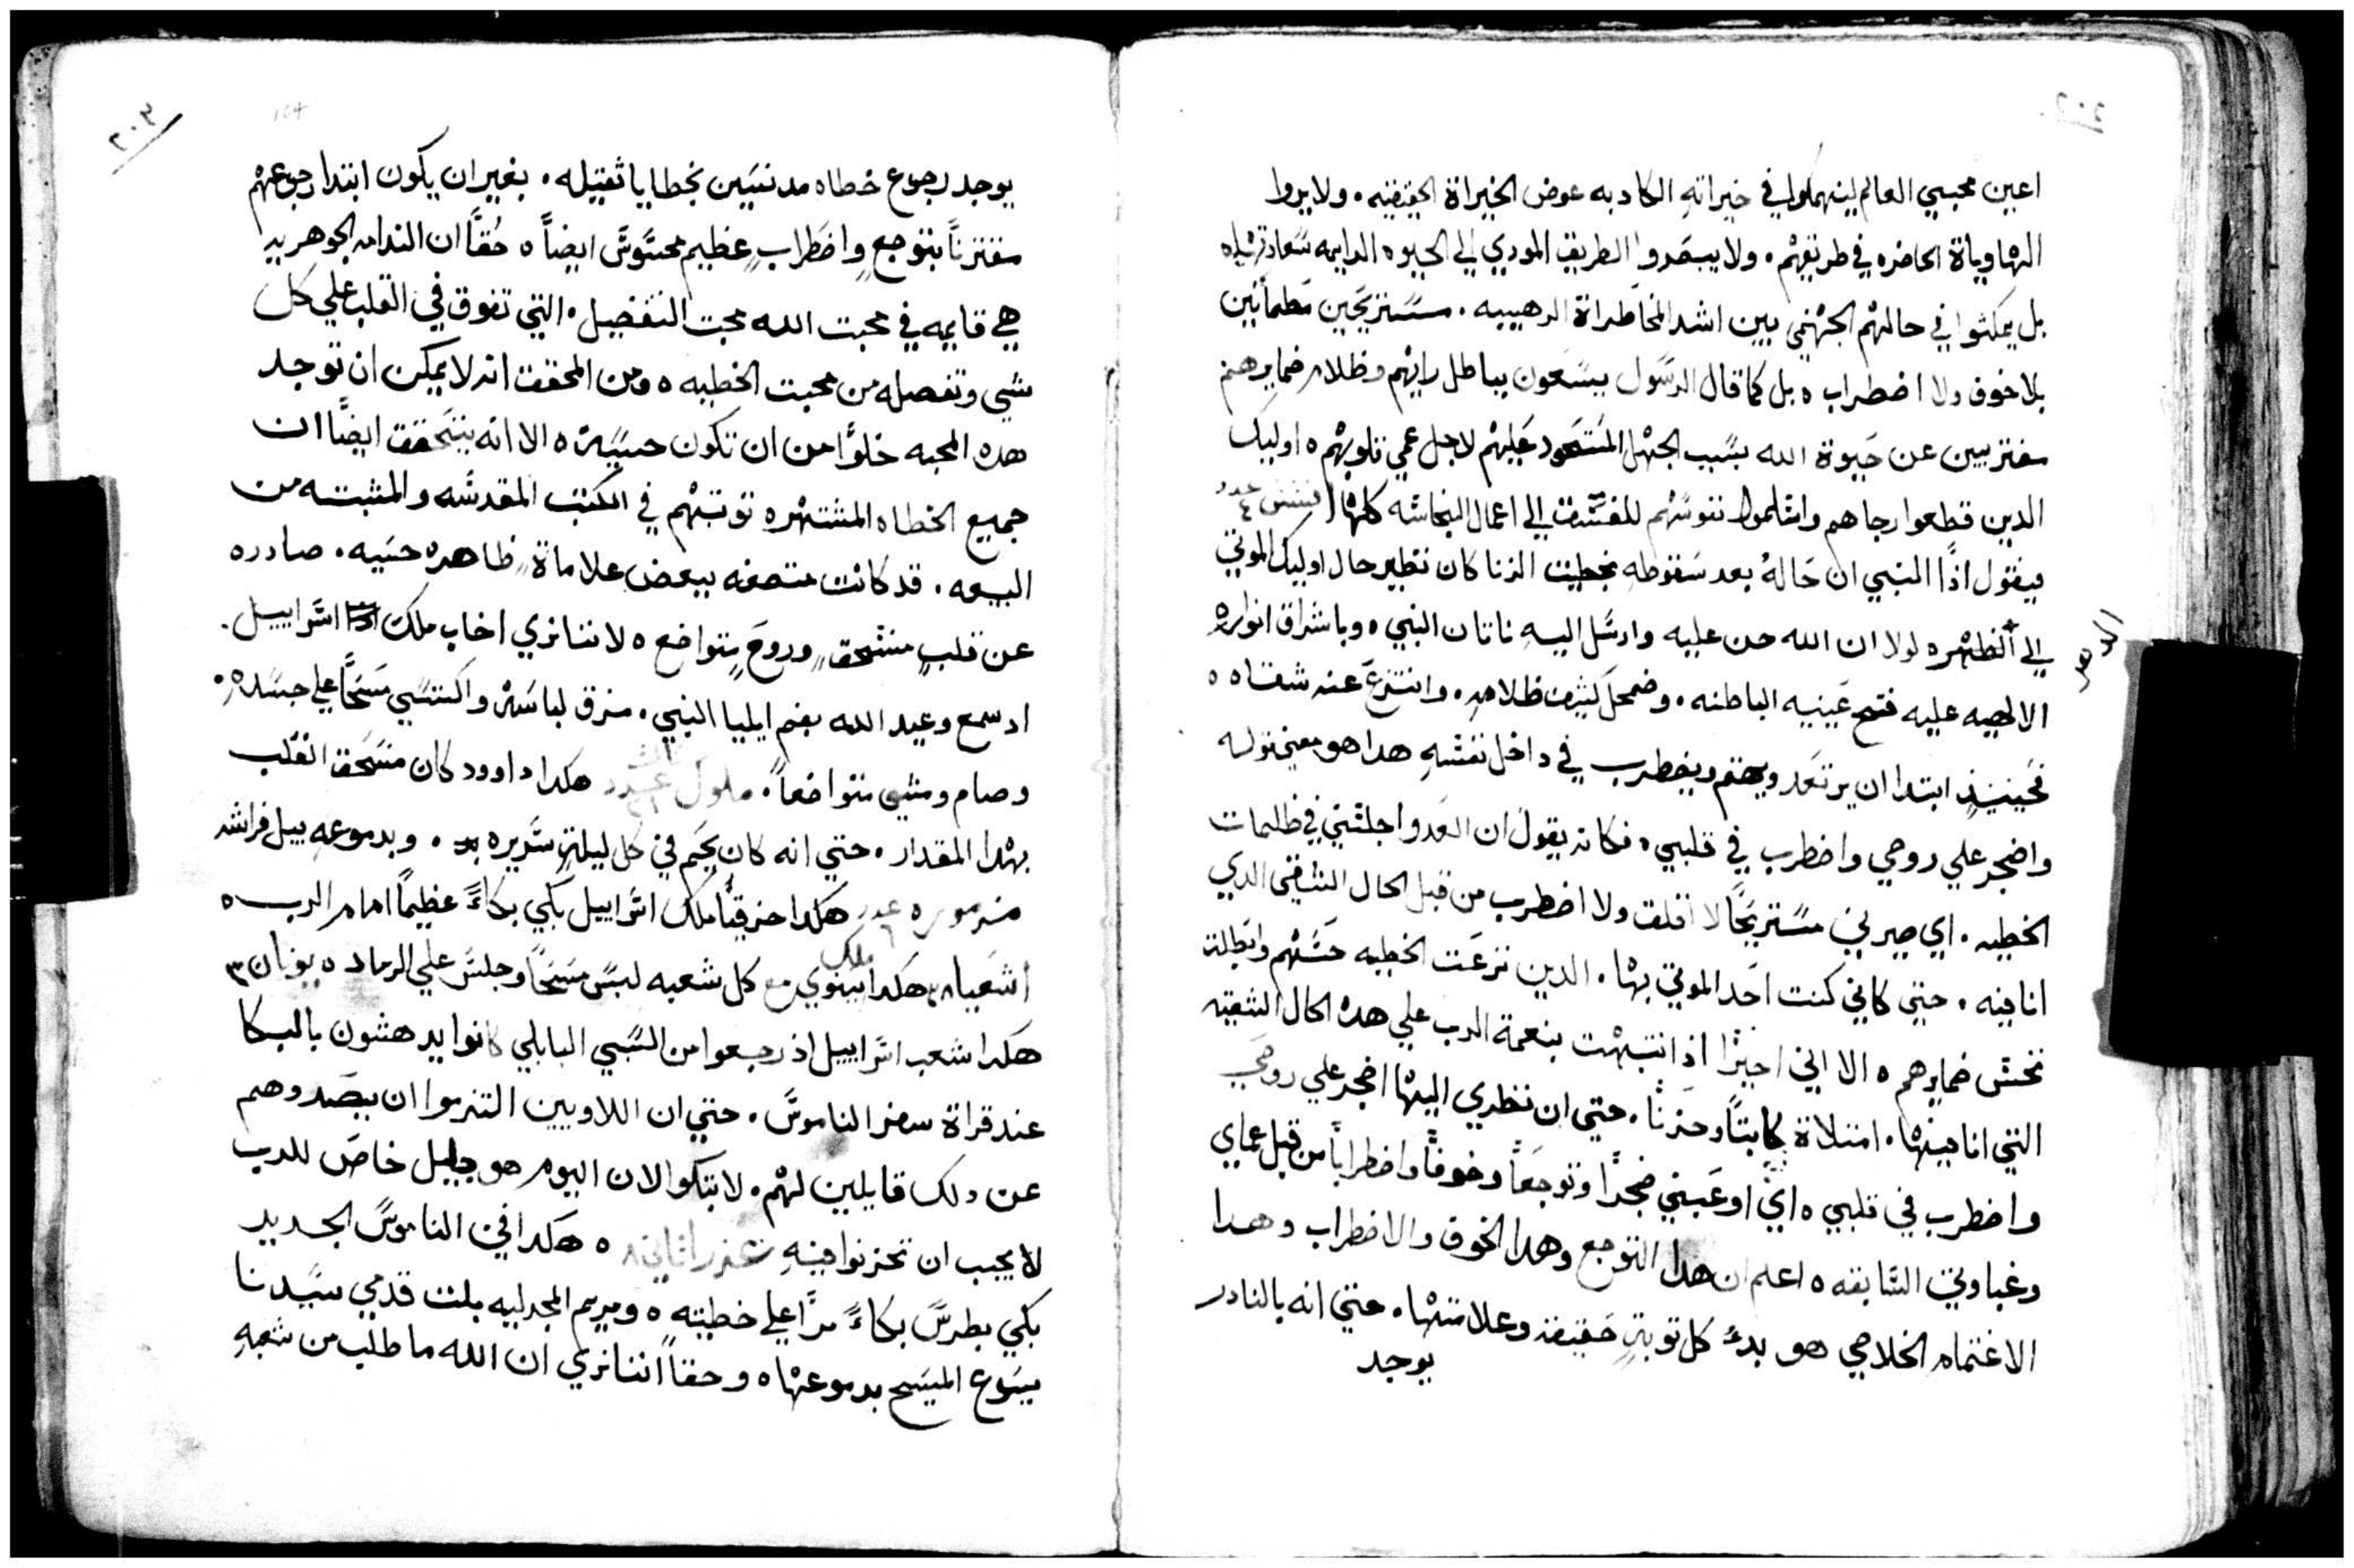 اعين محبيي العالم لينهمكوا في خيراته الكادبه عوض الخيراة الحقيقيه. ولا يروا
الهاوياة الحاضره في طريقهم. ولا يبصروا الطريق المودي الي الحيوه الدايمه
بل يمكثوا في حالهم الجهنمي بين اشد المخاطراة الرهيبه. مستريحين مطمأنين
بلا خوف ولا اضطراب ه بل كما قال الرسول يسعون بباطل رايهم وظلام ضمايرهم
مغتربين عن حيوة الله بسبب الجهل المستحود عليهم لاجل عمي قلوبهم ه اوليك
الدين قطعوا رجاهم واسلموا نفوسهم للفسق الي اعمال النجاسه كلها افسس عدد ٤
فيقول اذًا النبي ان حالهُ بعد سقوطهِ بخطيت الزنا كان نظير حال اوليك الموتي
الي الدهر
لولا ان الله حن عليه وارسل اليهِ ناتان النبي ه وباشراق انواره
الالهيه عليه فتح عينيه الباطنه. وضمحل كثيف ظلامهِ. وانتزع عنه شقاه ه
فحينيذٍ ابتدا ان يرتعد ويهتم ويضطرب في داخل نفسهِ هدا هو معني قوله
واضجر علي روحي واضطرب في قلبي ه فكانه يقول ان العدو اجلسني في ظلمات
الخطيه. اي صيرني مستريحًا لا اقلق ولا اضطرب من قبل الحال الشقي الدي
انا فيه. حتي كاني كنت احد الموتي بها. الدين نزعت الخطيه حسهم وابطلة
نخس ضمايرهم ه الا اني اخيرًا اذ انتبهت بنعمة الرب علي هده الحال الشقيه
التي انا فيها. امتلاة كابتًا وحزنًا. حتي ان نظري اليها اضجر علي روحي
واضطرب في قلبي ه اي اوعبني ضجرًا وتوجعًا وخوفًا واضطرابًا من قبل عماي
وغباوتي السابقه ه اعلم ان هدا التوجع وهدا الخوف والاضطراب وهدا
الاغتمام الخلاصي هو بدءُ كل توبةٍ حقيقه وعلامتها. حتي انه بالنادر
يوجد
٢٠٣
يوجد رجوع خطاه مدنسين بخطايا ثقيله. بغير ان يكون ابتدا رجوعهم
مقترنًا بتوجعٍ واضطرابٍ عظيم محسوسٍ ايضًا ه حُقًا ان الندامه الجوهريه
هي قايمه في محبت الله محبت التفضيل. التي تفوق في القلب علي كل
شي وتفصله من محبت الخطيه ه ومن المحقق انه لا يمكن ان توجد
هده المحبه خلوًا من ان تكون حسيه ه الا انه يتحقق ايضًا ان
جميع الخطاه المشتهره توبتهم في الكتب المقدسه والمثبته من
البيعه. قد كانت متصفه ببعض علاماة ظاهره حسيه. صادره
عن قلبٍ منسحقٍ وروحٍ متواضع ه لاننا نري اخاب ملك اسراييل.
اد سمع وعيد الله بفم ايليا النبي. مزق لباسه واكتسي مسحًا علي جسده.
وصام ومشي متواضعًا. ملوك ثالث عدد ٢١ هكدا داوود كان منسحق القلب
بهدا المقدار. حتي انه كان يحم في كل ليلةٍ سريره. وبدموعهِ يبل فراشه
مزموره عدد ٦ هكدا حزقيا ملك اسراييل بكي بكاءً عظيمًا امام الرب ه
اشعيا ٣٨ هكدا ملك نينوي مع كل شعبه لبس مسحًا وجلس علي الرماد ه يونان ٣
هكدا شعب اسراييل اذ رجعوا من السبي البابلي كانوا يدهشون بالبكا
عند قراة سفر الناموس. حتي ان اللاويين التزموا ان يصدوهم
عن دلك قايلين لهم. لا تبكوا لان اليوم هو جليل خاص للرب
لا يجب ان تحزنوا فيهِ عزرا ثاني ٨ ه هكدا في الناموس الجديد
بكي بطرس بكاءً مرًا علي خطيته ه ومريم المجدليه بلت قدمي سيدنا
يسوع المسيح بدموعها ه وحقًا اننا نري ان الله ما طلب من شعبهِ